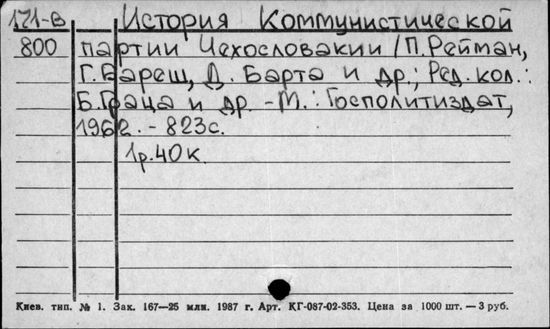 171-в История Коммунистической
800 партии Чехословакии / П. Рейман,
Г. Бареш, Д. Барта и др.; Ред. кол.:
Б. Граца и др. - М.: Госполитиздат,
1962. - 823с.
1р.40к.
Киев. тип. № 1. Зак. 167—25 млн. 1987 г. Арт. КГ-087-02-353. Цена за 1000 шт. — 3 руб.